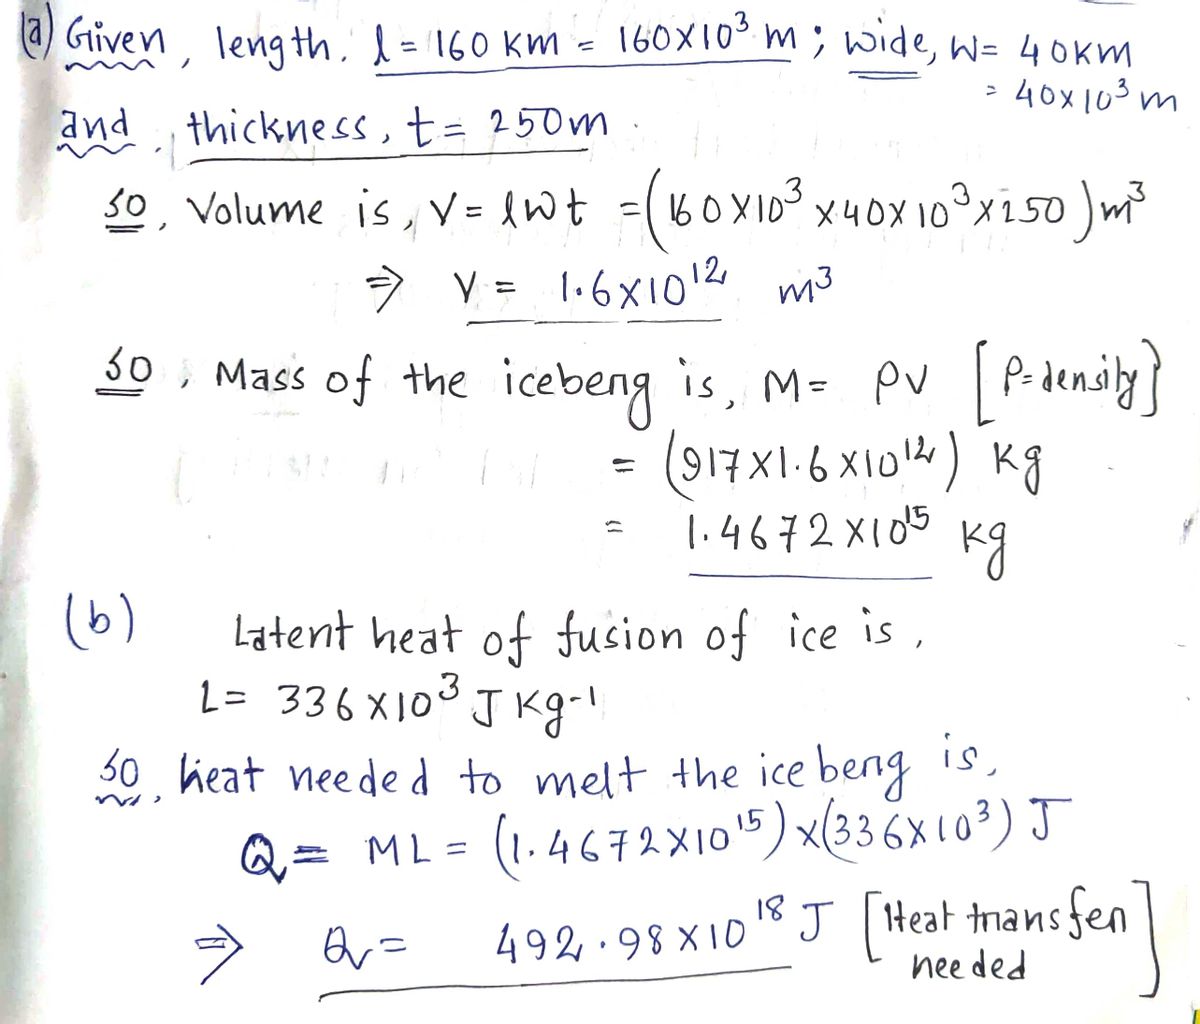 (a) Given, length, l = 160 km = 160×10³ m ; wide, W = 40km
= 40×10³ m
and, thickness, t = 250m
so, Volume is, V = lwt = (160×10³ ×40×10³×250) m³
⇒ V = 1.6×10¹² m³
so, Mass of the iceberg is, M = ρv [ρ=density]
= (917×1.6×10¹²) kg
= 1.4672×10¹⁵ kg
(b) Latent heat of fusion of ice is,
L = 336×10³ J kg⁻¹
so, heat needed to melt the iceberg is,
Q = ML = (1.4672×10¹⁵)×(336×10³) J
⇒ Q = 492.98×10¹⁸ J [Heat transfer
needed]